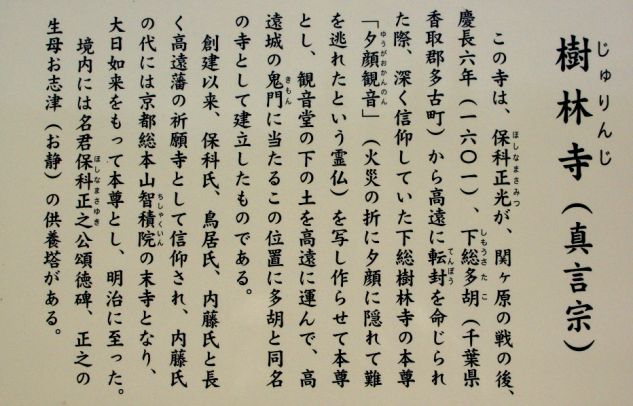 樹林寺（真言宗）
じゅりんじ
この寺は、保科正光が、関ヶ原の戦の後、
ほしなまさみつ
慶長六年（一六〇一）、下総多胡（千葉県
しもうさたこ
香取郡多古町）から高遠に転封を命じられ
てんぽう
た際、深く信仰していた下総樹林寺の本尊
「夕顔観音」（火災の折に夕顔に隠れて難
ゆうがおかんのん
を逃れたという霊仏）を写し作らせて本尊
とし、観音堂の下の土を高遠に運んで、高
遠城の鬼門に当たるこの位置に多胡と同名
きもん
の寺として建立したものである。
創建以来、保科氏、鳥居氏、内藤氏と長
く高遠藩の祈願寺として信仰され、内藤氏
の代には京都総本山智積院の末寺となり、
ちしゃくいん
大日如来をもって本尊とし、明治に至った。
境内には名君保科正之公頌徳碑、正之の
ほしなまさゆき
生母お志津（お静）の供養塔がある。